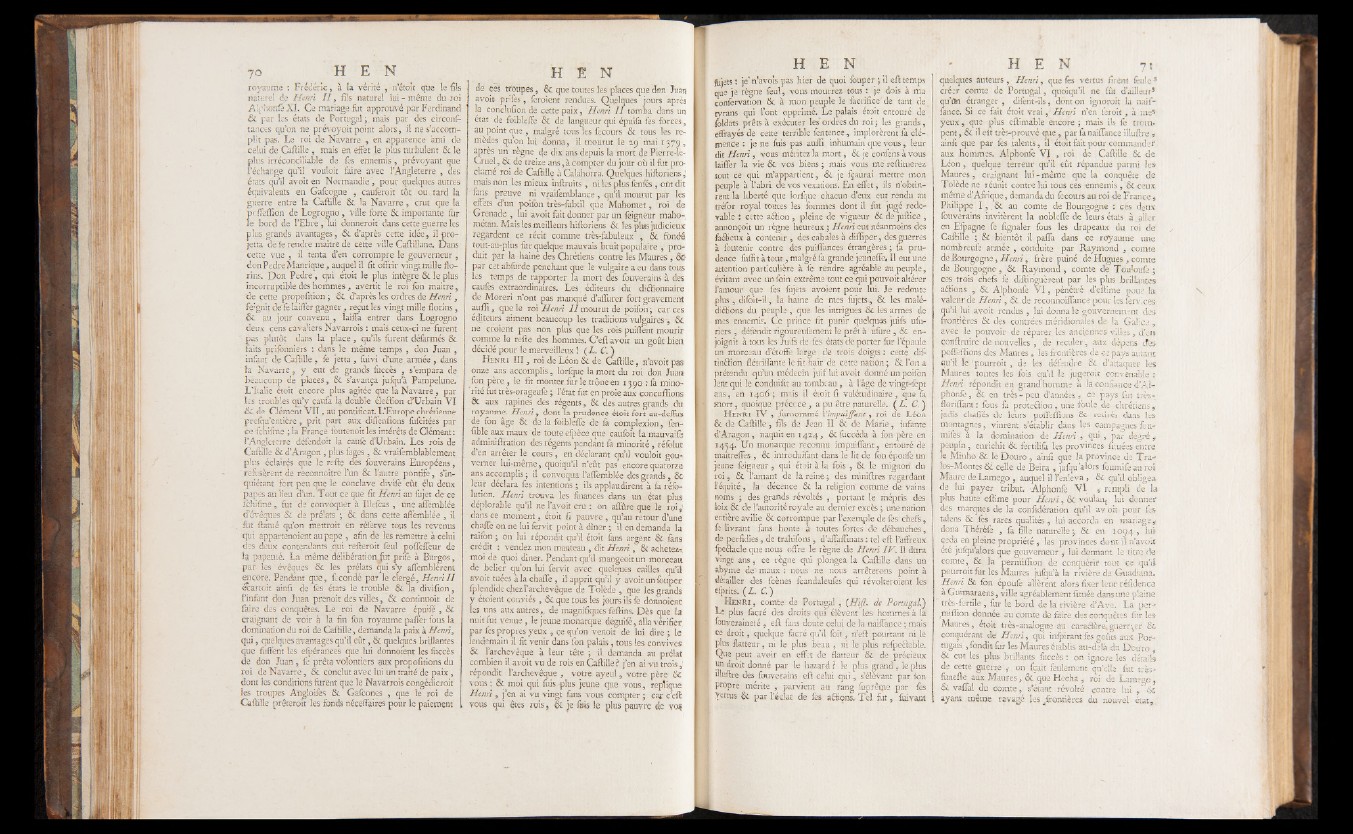 70 H E N
royaume : Frédéric, à la vérité, n'étoit que le fils
naturel de Henri II, fils naturel lui-même du roi
Alphonſe XI. Ce mariage fut approuvé par Ferdinand
& par les états de Portugal ; mais par des circonſ-
tances qu'on ne prévoyoit point alors, il ne s'accom-
plit pas. Le roi de Navarre, en apparence ami de
celui de Caſtille, mais en effet le plus turbulent & le
plus irréconciliable de ſes ennemis, prévoyant que
l'échange qu'il vouloit faire avec l'Angleterre, des
états qu'il avoit en Normandie, pour quelques autres
équivalents en Gaſcogne, cauſeroit tôt ou tard la
guerre entre la Caſtille & la Navarre, crut que la
poſſeſſion de Logrogno, ville forte & importante ſur
le bord de l'Ebre, lui donneroit dans cette guerre les
plus grands avantages, & d'après cette idée, il pro-
jetta de ſe rendre maître de cette ville Caſtillane. Dans
cette vue, il tenta d'en corrompre le gouverneur,
don Pedre Manrique, auquel il fit offrir vingt mille flo-
rins. Don Pedre, qui étoit le plus intègre & le plus
incorruptible des hommes, avertit le roi ſon maître,
de cette propoſition ; & d'après les ordres de Henri,
feignit de ſe laiſſer gagner, reçut les vingt mille florins,
& au jour convenu, laiſſa entrer dans Logrogno
deux cens cavaliers Navarrois : mais ceux-ci ne furent
pas plutôt dans la place, qu'ils furent déſarmés &
faits priſonniers : dans le même temps, don Juan,
infant de Caſtille, ſe jetta, ſuivi d'une armée, dans
la Navarre, y eut de grands ſuccès, s'empara de
beaucoup de places, & s'avança juſqu'à Pampelune.
L'Italie étoit encore plus agitée que la Navarre, par
les troubles qu'y cauſa la double élection d'Urbain VI
& de Clément VII, au pontificat. L'Europe chrétienne
preſqu'entière, prit part aux diſſenſions ſuſcitées par
ce ſchiſme ; la France ſoutenoit les intérêts de Clément :
l'Angleterre défendoit la cauſe d'Urbain. Les rois de
Caſtille & d'Aragon, plus ſages, & vraiſemblablement
plus éclairés que le reſte des ſouverains Européens,
refuſèrent de reconnoître l'un & l'autre pontife, s'in-
quiétant fort peu que le conclave diviſé eût élu deux
papes au lieu d'un. Tout ce que fit Henri au ſujet de ce
ſchiſme, fut de convoquer à Illeſcas, une aſſemblée
d'évêques & de prélats ; & dans cette aſſemblée, il
fut ſtatué qu'on mettroit en réſerve tous les revenus
qui appartenoient au pape, afin de les remettre à celui
des deux contendans qui reſteroit ſeul poſſeſſeur de
la papauté. La même délibération fut priſe à Burgos,
par les évêques & les prélats qui s'y aſſemblèrent
encore. Pendant que, ſecondé par le clergé, Henri II
écartoit ainſi de ſes états le trouble & la diviſion,
l'infant don Juan prenoit des villes, & continuoit de
faire des conquêtes. Le roi de Navarre épuiſé, &
craignant de voir à la fin ſon royaume paſſer ſous la
domination du roi de Caſtille, demanda la paix à Henri,
qui, quelques avantages qu'il eût, & quelques brillantes
que fuſſent les eſpérances que lui donnoient les ſuccès
de don Juan, ſe prêta volontiers aux propoſitions du
roi de Navarre, & conclut avec lui un traité de paix,
dont les conditions furent que le Navarrois congédieroit
les troupes Angloiſes & Gaſconnes, que le roi de
Caſtille prêteroit les fonds néceſſaires pour le paiement
H E N
de ces troupes, & que toutes les places que don Juan
avoit priſes, ſeroient rendues. Quelques jours après
la concluſion de cette paix, Henri II tomba dans un
état de foibleſſe & de langueur qui épuiſa ſes forces,
au point que, malgré tous les ſecours & tous les re-
mèdes qu'on lui donna, il mourut le 29 mai 1379,
après un règne de dix ans depuis la mort de Pierre-le-
Cruel, & de treize ans, à compter du jour où il fut pro-
clamé roi de Caſtille à Calahorra. Quelques hiſtoriens,
mais non les mieux inſtruits, ni les plus ſenſés, ont dit
ſans preuve ni vraiſemblance, qu'il mourut par les
effets d'un poiſon très-ſubtil que Mahomet, roi de
Grenade, lui avoit fait donner par un ſeigneur maho-
métan. Mais les meilleurs hiſtoriens & les plus judicieux
regardent ce récit comme très-fabuleux, & fondé
tout-au-plus ſur quelque mauvais bruit populaire, pro-
duit par la haine des Chrétiens contre les Maures, &
par cet abſurde penchant que le vulgaire a eu dans tous
les temps de rapporter la mort des ſouverains à des
cauſes extraordinaires. Les éditeurs du dictionnaire
de Moreri n'ont pas manqué d'aſſurer fort gravement
auſſi, que le roi Henri II mourut de poiſon ; car ces
éditeurs aiment beaucoup les traditions vulgaires, &
ne croient pas non plus que les rois puiſſent mourir
comme le reſte des hommes. C'eſt avoir un goût bien
décidé pour le merveilleux ! (L. C.)
HENRI III, roi de Léon & de Caſtille, n'avoit pas
onze ans accomplis, lorſque la mort du roi don Juan
ſon père, le fit monter ſur le trône en 1390 : ſa mino-
rité fut très-orageuſe ; l'état fut en proie aux concuſſions
& aux rapines des régents, & des autres grands du
royaume. Henri, dont la prudence étoit fort au-deſſus
de ſon âge & de la foibleſſe de ſa complexion, ſen-
ſible aux maux de toute eſpèce que cauſoit la mauvaiſe
adminiſtration des régens pendant ſa minorité, réſolut
d'en arrêter le cours, en déclarant qu'il vouloit gou-
verner lui-même, quoiqu'il n'eût pas encore quatorze
ans accomplis ; il convoqua l'aſſemblée des grands, &
leur déclara ſes intentions ; ils applaudirent à ſa réſo-
lution. Henri trouva les finances dans un état plus
déplorable qu'il ne l'avoit cru : on aſſûre que le roi,
dans ce moment, étoit ſi pauvre, qu'au retour d'une
chaſſe on ne lui ſervit point à dîner ; il en demanda la
raiſon ; on lui répondit qu'il étoit ſans argent & ſans
crédit : vendez mon manteau, dit Henri, & achetez-
moi de quoi dîner. Pendant qu'il mangeoit un morceau
de bélier qu'on lui ſervit avec quelques cailles qu'il
avoit tuées à la chaſſe, il apprit qu'il y avoit un ſouper
ſplendide chez l'archevêque de Tolède, que les grands
y étoient conviés, & que tous les jours ils ſe donnoient
les uns aux autres, de magnifiques feſtins. Dès que la
nuit fut venue, le jeune monarque déguiſé, alla vérifier
par ſes propres yeux, ce qu'on venoit de lui dire ; le
lendemain il fit venir dans ſon palais, tous les convives
& l'archevêque à leur tête ; il demanda au prélat
combien il avoit vu de rois en Caſtille ? j'en ai vu trois,
répondit l'archevêque, votre ayeul, votre père &
vous : & moi qui ſuis plus jeune que vous, replique
Henri, j'en ai vu vingt ſans vous compter ; car c'eſt
vous qui êtes rois, & je ſuis le plus pauvre de vos
H E N
ſujets : je n'avois pas hier de quoi ſouper ; il eſt temps
que je règne ſeul, vous mourrez tous : je dois à ma
conſervation & à mon peuple le ſacrifice de tant de
tyrans qui l'ont opprimé. Le palais étoit entouré de
ſoldats prêts à exécuter les ordres du roi ; les grands,
effrayés de cette terrible ſentence, implorèrent ſa clé-
mence : je ne ſuis pas auſſi inhumain que vous, leur
dit Henri, vous méritez la mort, & je conſens à vous
laiſſer la vie & vos biens ; mais vous me reſtituerez
tout ce qui m'appartient, & je ſçaurai mettre mon
peuple à l'abri de vos vexations. En effet, ils n'obtin-
rent la liberté que lorſque chacun d'eux eut rendu au
tréſor royal toutes les ſommes dont il fut jugé rede-
vable : cette action, pleine de vigueur & de juſtice,
annonçoit un règne heureux ; Henri eut néanmoins des
factieux à contenir, des cabales à diſſiper, des guerres
à ſoutenir contre des puiſſances étrangères ; ſa pru-
dence ſuffit à tout, malgré ſa grande jeuneſſe. Il eut une
attention particulière à ſe rendre agréable au peuple,
évitant avec un ſoin extrême tout ce qui pouvoit altérer
l'amour que ſes ſujets avoient pour lui. Je redoute
plus, diſoit-il, la haine de mes ſujets, & les malé-
dictions du peuple, que les intrigues & les armes de
mes ennemis. Ce prince fit punir quelques juifs uſu-
riers, défendit rigoureuſement le prêt à uſure, & en-
joignit à tous les Juifs de ſes états de porter ſur l'épaule
un morceau d'étoffe large de trois doigts : cette diſ-
tinction flétriſſante le fit haïr de cette nation ; & l'on a
prétendu qu'un médecin juif lui avoit donné un poiſon
lent qui le conduiſit au tombeau, à l'âge de vingt-ſept
ans, en 1406 ; mais il étoit ſi valétudinaire, que ſa
mort, quoique précoce, a pu être naturelle. (L. C.)
HENRI IV, ſurnommé l'Impuiſſant, roi de Léon
& de Caſtille, fils de Jean II & de Marie, infante
d'Aragon, naquit en 1424, & ſuccéda à ſon père en
1454. Un monarque reconnu impuiſſant, entouré de
maitreſſes, & introduiſant dans le lit de ſon épouſe un
jeune ſeigneur, qui étoit à la fois, & le mignon du
roi, & l'amant de la reine ; des miniſtres regardant
l'équité, la décence & la religion comme de vains
noms ; des grands révoltés, portant le mépris des
loix & de l'autorité royale au dernier excès ; une nation
entière avilie & corrompue par l'exemple de ſes chefs,
ſe livrant ſans honte à toutes ſortes de débauches,
de perfidies, de trahiſons, d'aſſaſſinats : tel eſt l'affreux
ſpectacle que nous offre le règne de Henri IV. Il dura
vingt ans, ce règne qui plongea la Caſtille dans un
abyme de maux : nous ne nous arrêterons point à
détailler des ſcènes ſcandaleuſes qui révolteroient les
eſprits. (L. C.)
HENRI, comte de Portugal, (Hiſt. de Portugal.)
Le plus ſacré des droits qui élèvent les hommes à la
ſouveraineté, eſt ſans doute celui de la naiſſance ; mais
ce droit, quelque ſacré qu'il ſoit, n'eſt pourtant ni le
plus flatteur, ni le plus beau, ni le plus reſpectable.
Que peut avoir en effet de flatteur & de précieux
un droit donné par le hazard ? le plus grand, le plus
illuſtre des ſouverains eſt celui qui, s'élèvant par ſon
propre mérite, parvient au rang ſuprême par ſes
vertus & par l'éclat de ſes actions. Tel fut, ſuivant
H E N 71
quelques auteurs, Henri, que ſes vertus firent ſeules
créer comte de Portugal, quoiqu'il ne fût d'ailleurs
qu'un étranger, diſent-ils, dont on ignoroit la naiſ-
ſance. Si ce fait étoit vrai, Henri n'en ſeroit, à mes
yeux, que plus eſtimable encore ; mais ils ſe trom-
pent, & il eſt très-prouvé que, par ſa naiſſance illuſtre,
ainſi que par ſes talents, il étoit fait pour commander
aux hommes. Alphonſe VI, roi de Caſtille & de
Léon, quelque terreur qu'il eût répandue parmi les
Maures, craignant lui-même que la conquête de
Tolède ne réunît contre lui tous ces ennemis, & ceux
même d'Afrique, demanda du ſecours au roi de France,
Philippe I, & au comte de Bourgogne : ces deux
ſouverains invitèrent la nobleſſe de leurs états à aller
en Eſpagne ſe ſignaler ſous les drapeaux du roi de
Caſtille ; & bientôt il paſſa dans ce royaume une
nombreuſe armée, conduite par Raymond, comte
de Bourgogne, Henri, frère puîné de Hugues, comte
de Bourgogne, & Raymond, comte de Toulouſe ;
ces trois chefs ſe diſtinguèrent par les plus brillantes
actions, & Alphonſe VI, pénétré d'eſtime pour la
valeur de Henri, & de reconnoiſſance pour les ſervices
qu'il lui avoit rendus, lui donna le gouvernement des
frontières & des contrées méridionales de la Galice,
avec le pouvoir de réparer les anciennes villes, d'en
conſtruire de nouvelles, de reculer, aux dépens des
poſſeſſions des Maures, les frontières de ce pays autant
qu'il le pourroit, de les défendre & d'attaquer les
Maures toutes les fois qu'il le jugeroit convenable :
Henri répondit en grand homme à la confiance d'Al-
phonſe, & en très-peu d'années, ce pays fut très-
floriſſant : ſous ſa protection, une foule de chrétiens,
jadis chaſſés de leurs poſſeſſions & retirés dans les
montagnes, vinrent s'établir dans les campagnes ſou-
miſes à la domination de Henri, qui, par degré,
peupla, enrichit & fertiliſa les provinces ſituées entre
le Minho & le Douro, ainſi que la province de Tra-
los-Montes & celle de Beira, juſqu'alors ſoumiſe au roi
Maure de Lamego, auquel il l'enleva, & qu'il obligea
de lui payer tribut. Alphonſe VI, rempli de la
plus haute eſtime pour Henri, & voulant lui donner
des marques de la conſidération qu'il avoit pour ſes
talens & ſes rares qualités, lui accorda en mariage
dona Théréſe, ſa fille naturelle ; & en 1094, lui
céda en pleine propriété, les provinces dont il n'avoit
été juſqu'alors que gouverneur, lui donnant le titre de
comte, & la permiſſion de conquérir tout ce qu'il
pourroit ſur les Maures juſqu'à la rivière de Guadiana.
Henri & ſon épouſe allèrent alors fixer leur réſidence
à Guimaraens, ville agréablement ſituée dans une plaine
très-fertile, ſur le bord de la rivière d'Ave. La per-
miſſion donnée au comte de faire des conquêtes ſur les
Maures, étoit très-analogue au caractère guerrier &
conquérant de Henri, qui inſpirant ſes goûts aux Por-
tugais, fondit ſur les Maures établis au-delà du Douro,
& eut les plus brillants ſuccès : on ignore les détails
de cette guerre, on ſait ſeulement qu'elle fut très-
funeſte aux Maures, & que Hecha, roi de Lamego,
& vaſſal du comte, s'étant révolté contre lui, &
ayant même ravagé les frontières du nouvel état,